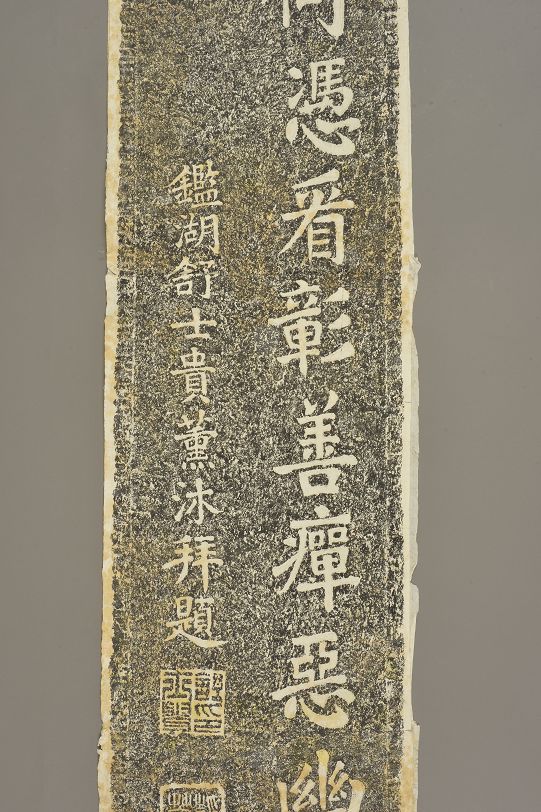 何憑看彰善癉惡幽
鑑湖舒士貴薰沐拜題